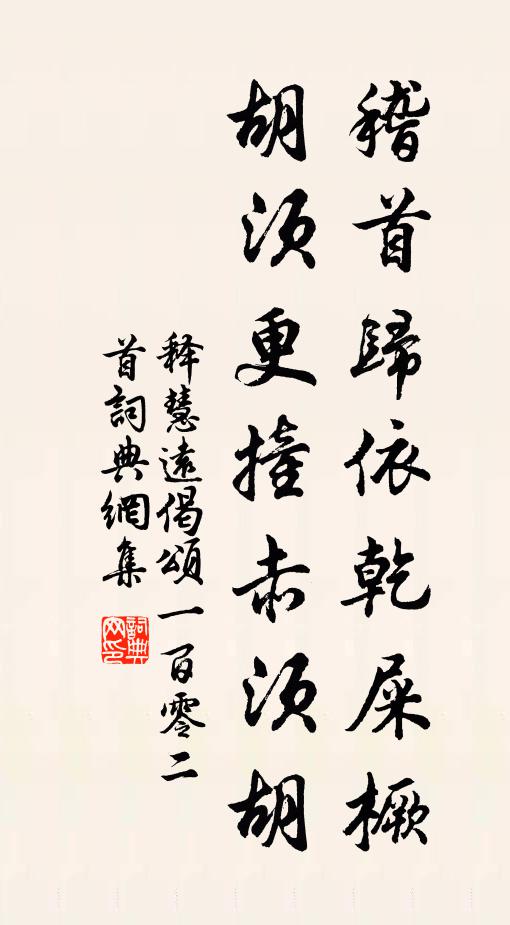 稽首歸依乾屎橛
胡須更撞赤須胡
释慧遠偈頌一百零二
首詞典網集
詞典网印